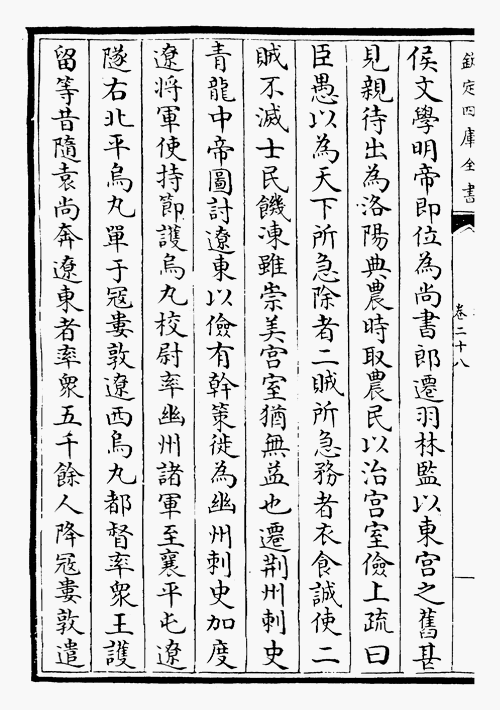 欽定四庫全書
卷二十八
侯文學明帝即位為尚書郎遷羽林監以東宮之舊甚
見親待出為洛陽典農時取農民以治宮室儉上疏曰
臣愚以為天下所急除者二賊所急務者衣食誠使二
賊不滅士民饑凍雖崇美宮室猶無益也遷荆州刺史
青龍中帝圖討遼東以儉有幹策徙為幽州刺史加度
遼將軍使持節護烏丸校尉率幽州諸軍至襄平屯遼
隧右北平烏丸單于冦婁敦遼西烏丸都督率衆王護
留等昔隨袁尚奔遼東者率衆五千餘人降冦婁敦遣